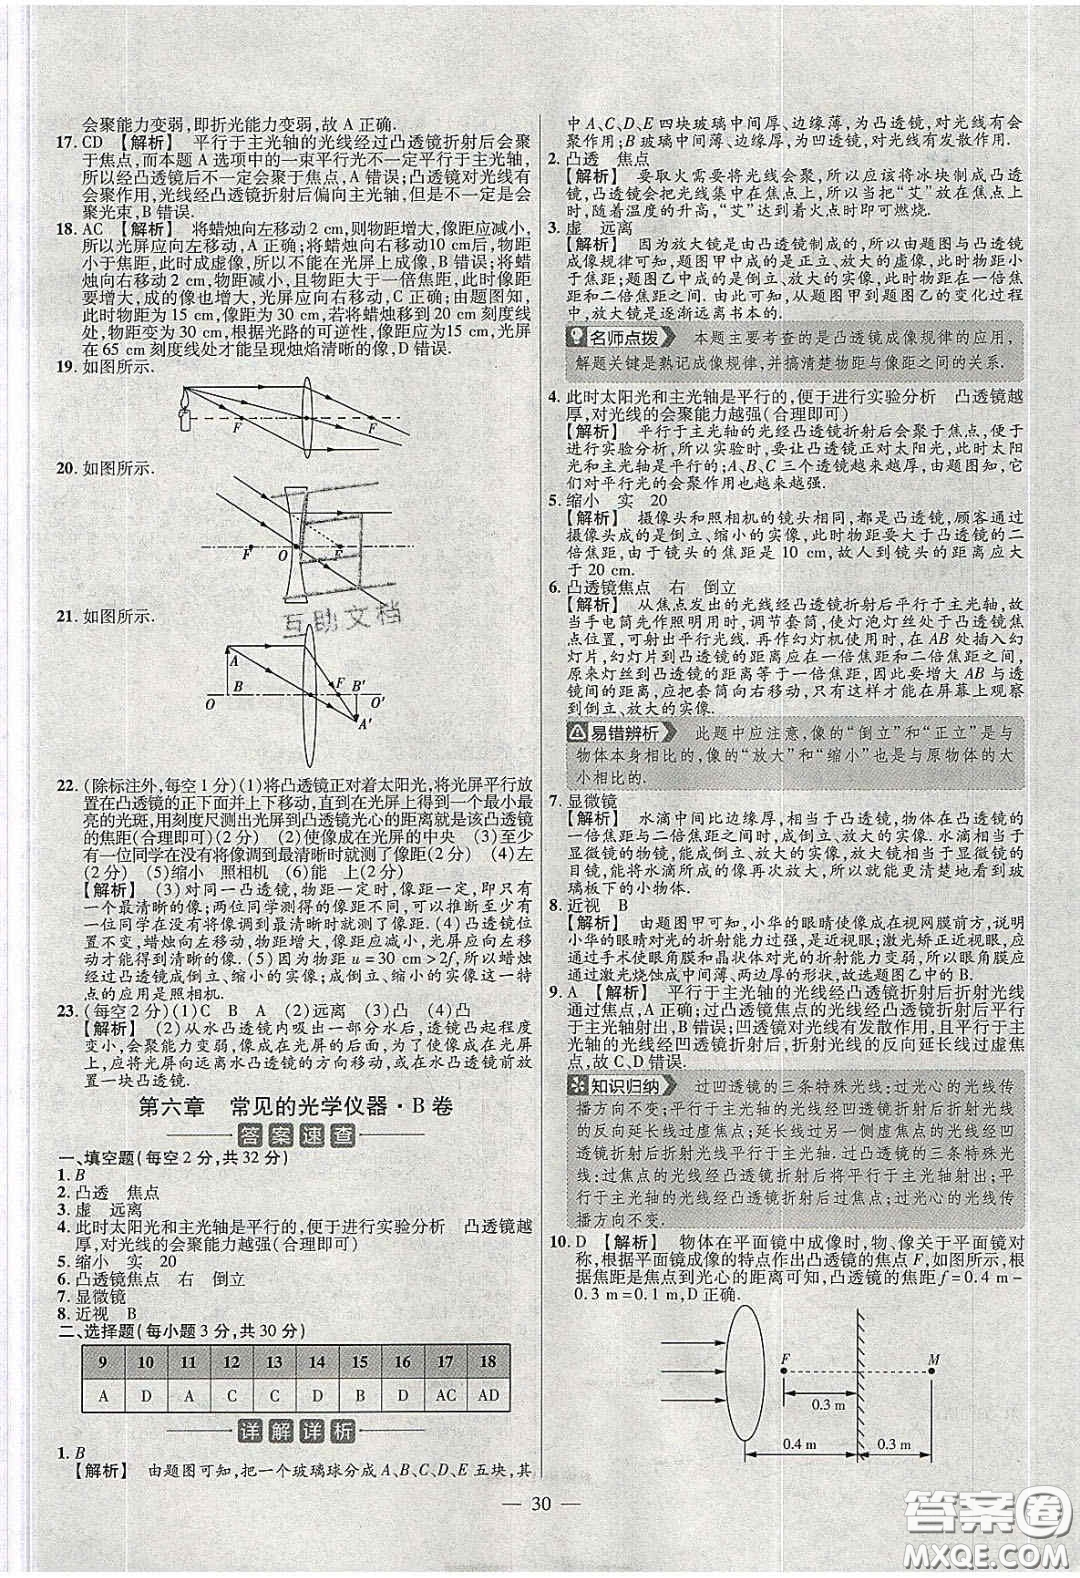 会聚能力变弱,即折光能力变弱,故 A 正确.
17. CD 【解析】 平行于主光轴的光线经过凸透镜折射后会聚
于焦点,而本题 A 选项中的一束平行光不一定平行于主光轴,
所以经过凸透镜后不一定会聚于焦点,A 错误;凸透镜对光线有
会聚作用,光线经凸透镜折射后偏向主光轴,但不一定是会
聚光束,B 错误.
18. AC 【解析】 将蜡烛向左移动 2 cm,则物距增大,像距应减小,
所以光屏应向左移动,A 正确;将蜡烛向右移动10 cm,则物距
小于焦距,此时成虚像,所以不能在光屏上成像,B 错误;将蜡
烛向右移动2 cm,物距减小,且物距大于一倍焦距,此时像距
要增大,成的像也增大,光屏应向右移动,C 正确;由题图知,
此时物距为 15 cm,像距为 30 cm,若将蜡烛移到 20 cm 刻度
线处,物距变为 30 cm,根据光路的可逆性,像距为15 cm,光屏
在 65 cm 刻度线处才能呈现烛焰清晰的像,D 错误.
19. 如图所示.
F F
20. 如图所示.
F O F
21. 如图所示.
互助文档
A
B
O
B′
O′
A′
22. (除标注外,每空 1 分)(1)将凸透镜正对着太阳光,将光屏平行放
置在凸透镜的正下面并上下移动,直到在光屏上得到一个最小最
亮的光斑,用刻度尺测出光屏到凸透镜光心的距离就是该凸透镜
的焦距(合理即可)(2 分) (2)使像成在光屏的中央 (3)至少
有一位同学在没有将像调到最清晰时就测量了像距 (4)左
(2 分) (5)缩小 照相机 (6)能 上(2 分)
【解析】 (3)对同一凸透镜,物距一定时,像距一定,只有一
个最清晰的像;两位同学测得的像距差别较大,应该是至少有
一位同学在没有将像调到最清晰时就测量了像距. (4)凸透镜
位置不变,蜡烛向左移动,物距增大,像距应减小,光屏应向左
移动才能得到清晰的像. (5) 因为物距 u = 30 cm > 2f,所以蜡烛
经过凸透镜成倒立、缩小的实像;成倒立、缩小的实像这一特
点的应用是照相机.
23. (每空 2 分)(1)C B A (2)远离 (3)凸 (4)凸
【解析】 (2)从水凸透镜内吸出一部分水后,透镜凸起程度
变小,会聚能力变弱,像成在光屏的后面,为了使像成在光屏
上,光屏应向远离水凸透镜方向移动,或在水凸透镜前放
置一块凸透镜.
第六章 常见的光学仪器·B 卷
答案速查
一、填空题(每空 2 分,共 32 分)
1. B
2. 凸透 焦点
3. 虚 远离
4. 此时太阳光和主光轴是平行的,便于进行实验分析 凸透镜越
厚,对光线的会聚能力越强(合理即可)
5. 缩小 实 20
6. 凸透镜焦点 右 倒立
7. 显微镜
8. 近视 B
二、选择题(每小题 3 分,共 30 分)
9 10 11 12 13 14 15 16 17 18
A D A C C D B D AC AD
详解详析
1. B
【解析】 由题图可知,把一个玻璃球分成 A、B、C、D、E 五块,其
中 A、C、D、E 四块玻璃中间厚、边缘薄,为凸透镜,对光线有会
聚作用;B 玻璃中间薄、边缘厚,为凹透镜,对光线有发散作用.
2. 凸透 焦点
【解析】 要取火需要将光线会聚,所以需将冰块制成凸透
镜,凸透镜会把光线集中在焦点上,所以把“艾”放在焦点上
时,随着温度的升高,“艾”达到着火点时即可燃烧.
3. 虚 远离
【解析】 因为放大镜是由凸透镜制成的,所以由题图与凸透镜
成像规律可知,题图甲中成的是正立、放大的虚像,此时物距小
于焦距;题图乙中成的是倒立、放大的实像,此时物距在一倍焦
距和二倍焦距之间.由此可知,从题图甲到题图乙的变化过程
中,放大镜是逐渐远离书本的.
名师点拨 本题主要考查的是凸透镜成像规律的应用,
解题关键是熟记成像规律,并搞清楚物距与像距之间的关系.
4. 此时太阳光和主光轴是平行的,便于进行实验分析 凸透镜越
厚,对光线的会聚能力越强(合理即可)
【解析】 平行于主光轴的光经凸透镜折射后会聚于焦点,便于
进行实验分析,所以实验时,要让凸透镜正对太阳光,此时太阳光
和主光轴是平行的;A、B、C 三个透镜越来越厚,由题图知,它
们对光的会聚作用也越来越强.
5. 缩小 实 20
【解析】 摄像头和照相机的镜头相同,都是凸透镜,顾客通过
摄像头成的是倒立、缩小的实像,此时物距要大于凸透镜的二
倍焦距,由于镜头的焦距是 10 cm,故人到镜头的距离应大
于 20 cm.
6. 凸透镜焦点 右 倒立
【解析】 从焦点发出的光线经凸透镜折射后平行于主光轴,故
当手电筒先作照明用时,调节套筒,使灯泡灯丝处于凸透镜焦
点位置,可射出平行光线. 再作幻灯机使用时,在 AB 处插入幻
灯片,幻灯片到凸透镜的距离应在一倍焦距和二倍焦距之间,
原来灯丝到凸透镜的距离等于一倍焦距,因此要增大 AB 与透
镜间的距离,应把套筒向右移动,只有这样才能在屏幕上观察
到倒立、放大的实像.
易错辨析 此题中应注意,像的“倒立”和“正立”是与
物体本身相比的,像的“放大”和“缩小”也是与原物体的大
小相比的.
7. 显微镜
【解析】 水滴中间比边缘厚,相当于凸透镜,物体在凸透镜的
一倍焦距与二倍焦距之间时,成倒立、放大的实像. 水滴相当于
显微镜的物镜,能成倒立、放大的实像,目镜成正立、放大的虚
像,能将水滴所成的像再次放大,所以能更清楚地看到玻
璃板下的小物体.
8. 近视 B
【解析】 由题图甲可知,小华的眼睛使像成在视网膜前方,说明
小华的眼睛对光的折射能力过强,是近视眼;激光矫正近视眼,
通过手术使眼角膜和晶状体对光的折射能力变弱,所以眼角膜
应通过激光烧蚀成中间薄、两边厚的形状,故选题图乙中的 B.
9. A 【解析】 平行于主光轴的光线经凸透镜折射后折射光线
通过焦点,A 正确;过凸透镜焦点的光线经凸透镜折射后平行
于主光轴射出,B 错误;凹透镜对光线有发散作用,且平行于主
光轴的光线经凹透镜折射后,折射光线的反向延长线过虚焦
点,故 C、D 错误.
知识归纳 过凹透镜的三条特殊光线:过光心的光线传
播方向不变;平行于主光轴的光线经凹透镜折射后折射光线
的反向延长线过虚焦点;延长线过另一侧虚焦点的光线经凹
透镜折射后平行于主光轴.过凸透镜的三条特殊光线:
过焦点的光线经凸透镜折射后将平行于主光轴射出;平
行于主光轴的光线经凸透镜折射后过焦点;过光心的光线传
播方向不变.
10. D 【解析】 物体在平面镜中成像时,物、像关于平面镜对
称,根据平面镜成像的特点作出凸透镜的焦点 F,如图所示,
根据焦距是焦点到光心的距离可知,凸透镜的焦距 f = 0.4 m -
0.3 m = 0.1 m,D 正确.
F M
0.3 m
0.4 m 0.3 m
— 30 —
答案圈
MXQE.COM